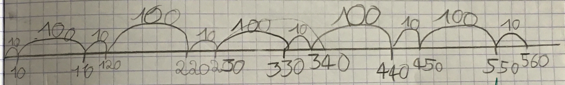 10 100 10 100 10 100 10 100 10 100 10
10 110 120 220 230 330 340 440 450 550 560